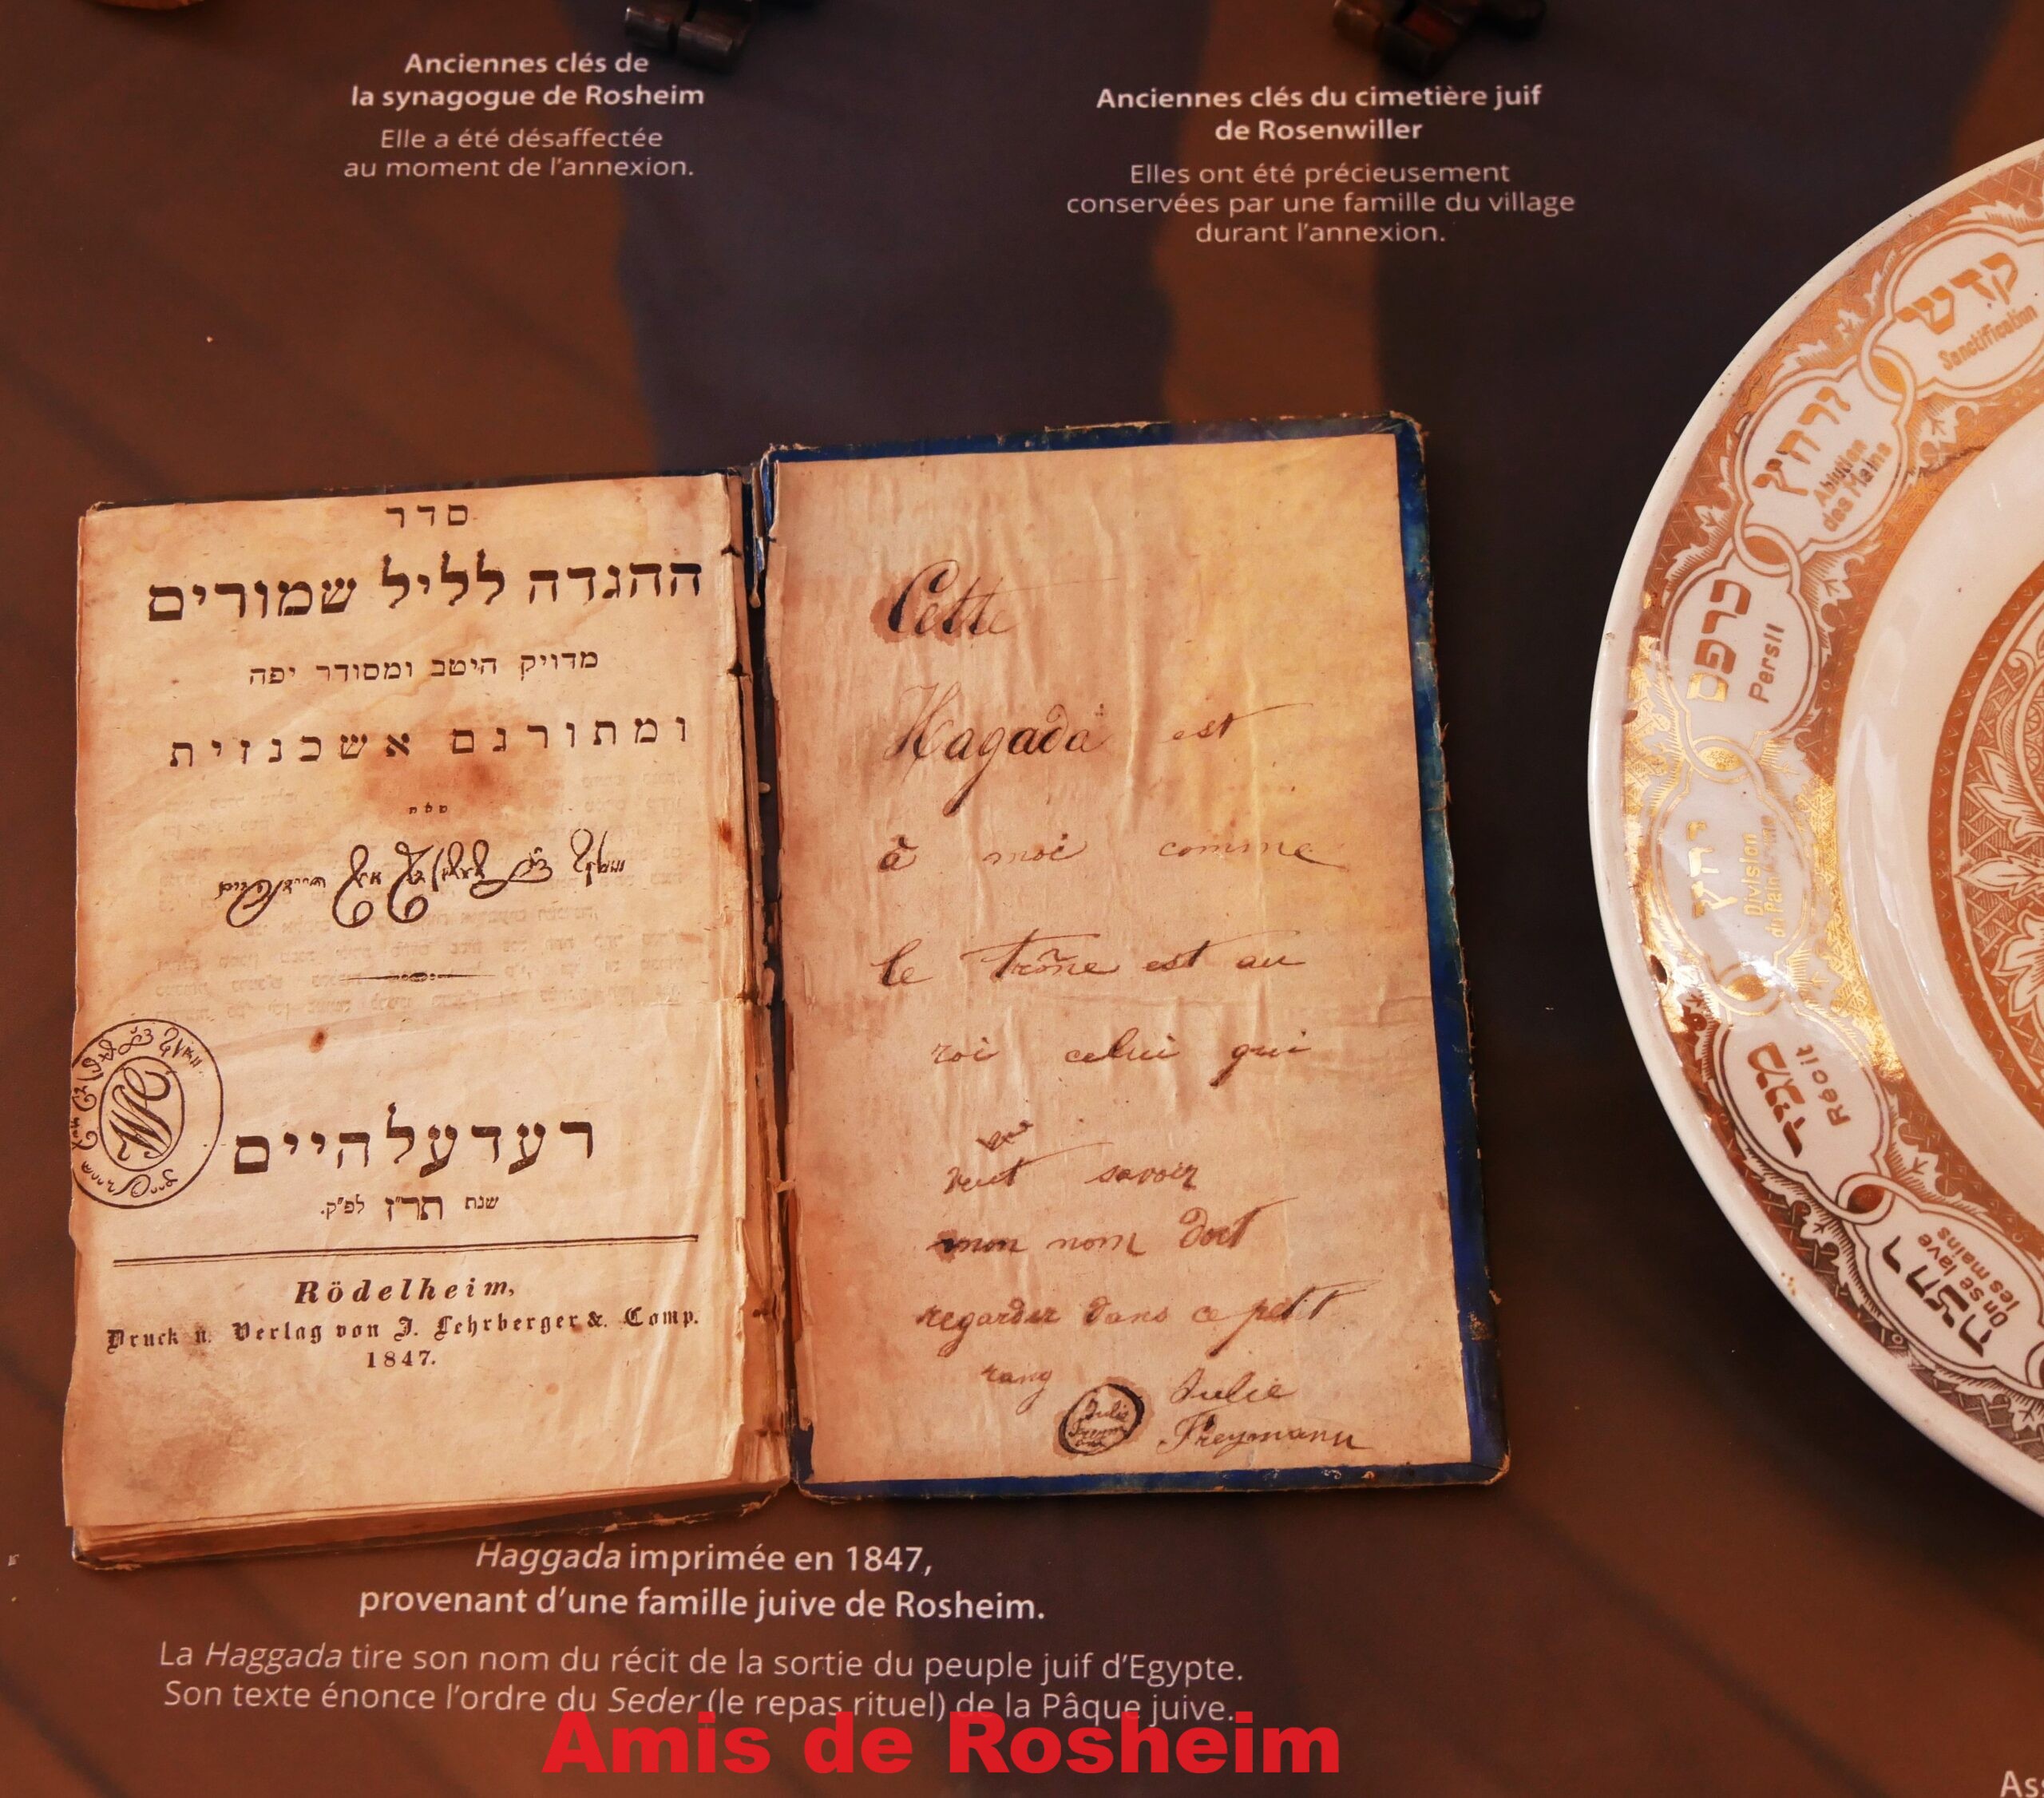 Anciennes clés de
la synagogue de Rosheim
Elle a été désaffectée
au moment de l'annexion.
Anciennes clés du cimetière juif
de Rosenwiller
Elles ont été précieusement
conservées par une famille du village
durant l'annexion.
סדר
ההגדה לליל שמורים
מדויק היטב ומסודר יפה
ומתורגם אשכנזית
רעדעלהיים
שנת תר״ז לפ״ק.
Rödelheim,
Druck u. Verlag von J. Lehrberger & Comp.
1847.
Cette
Hagada est
à moi comme
le trône est au
roi celui qui
veut savoir
mon nom doit
regarder dans ce petit
rang
Julie
Freymann
קדש
Sanctification
ורחץ
Ablution
des Mains
כרפס
Persil
יחץ
Division
du Pain
מגיד
Récit
רחצה
On se lave
les mains
Haggada imprimée en 1847,
provenant d'une famille juive de Rosheim.
La Haggada tire son nom du récit de la sortie du peuple juif d'Egypte.
Son texte énonce l'ordre du Seder (le repas rituel) de la Pâque juive.
Amis de Rosheim